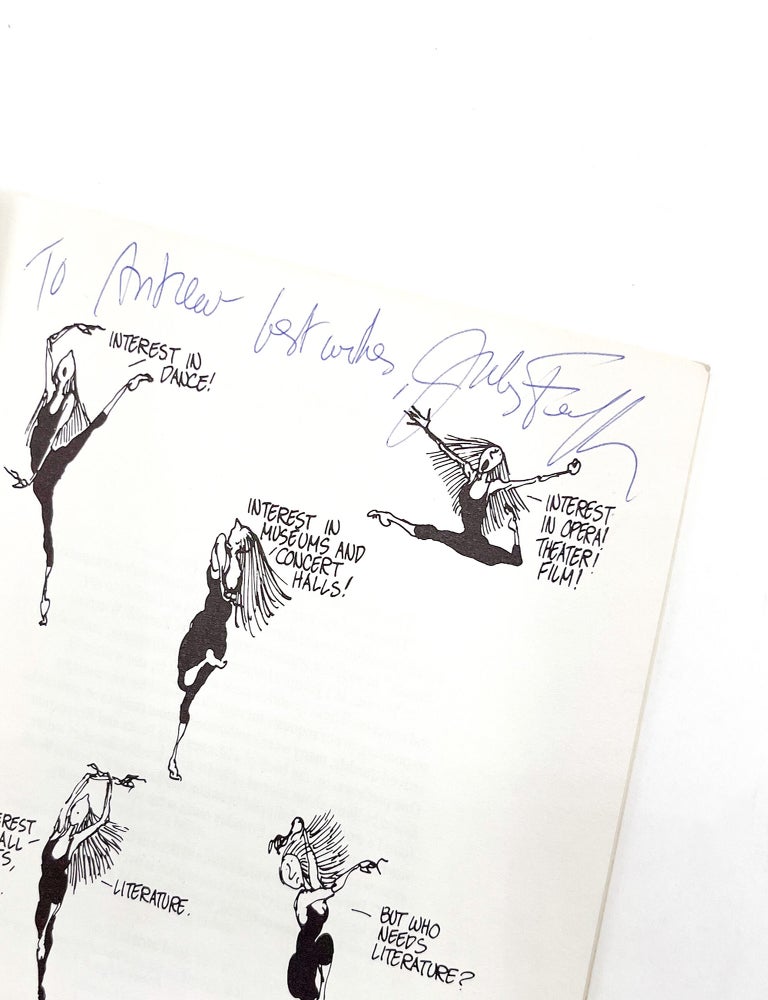 To Andrew best wishes, Jules Feiffer
INTEREST IN
DANCE!
INTEREST IN
MUSEUMS AND
CONCERT
HALLS!
INTEREST
IN OPERA!
THEATER!
FILM!
EREST
ALL
S,
LITERATURE.
BUT WHO
NEEDS
LITERATURE?